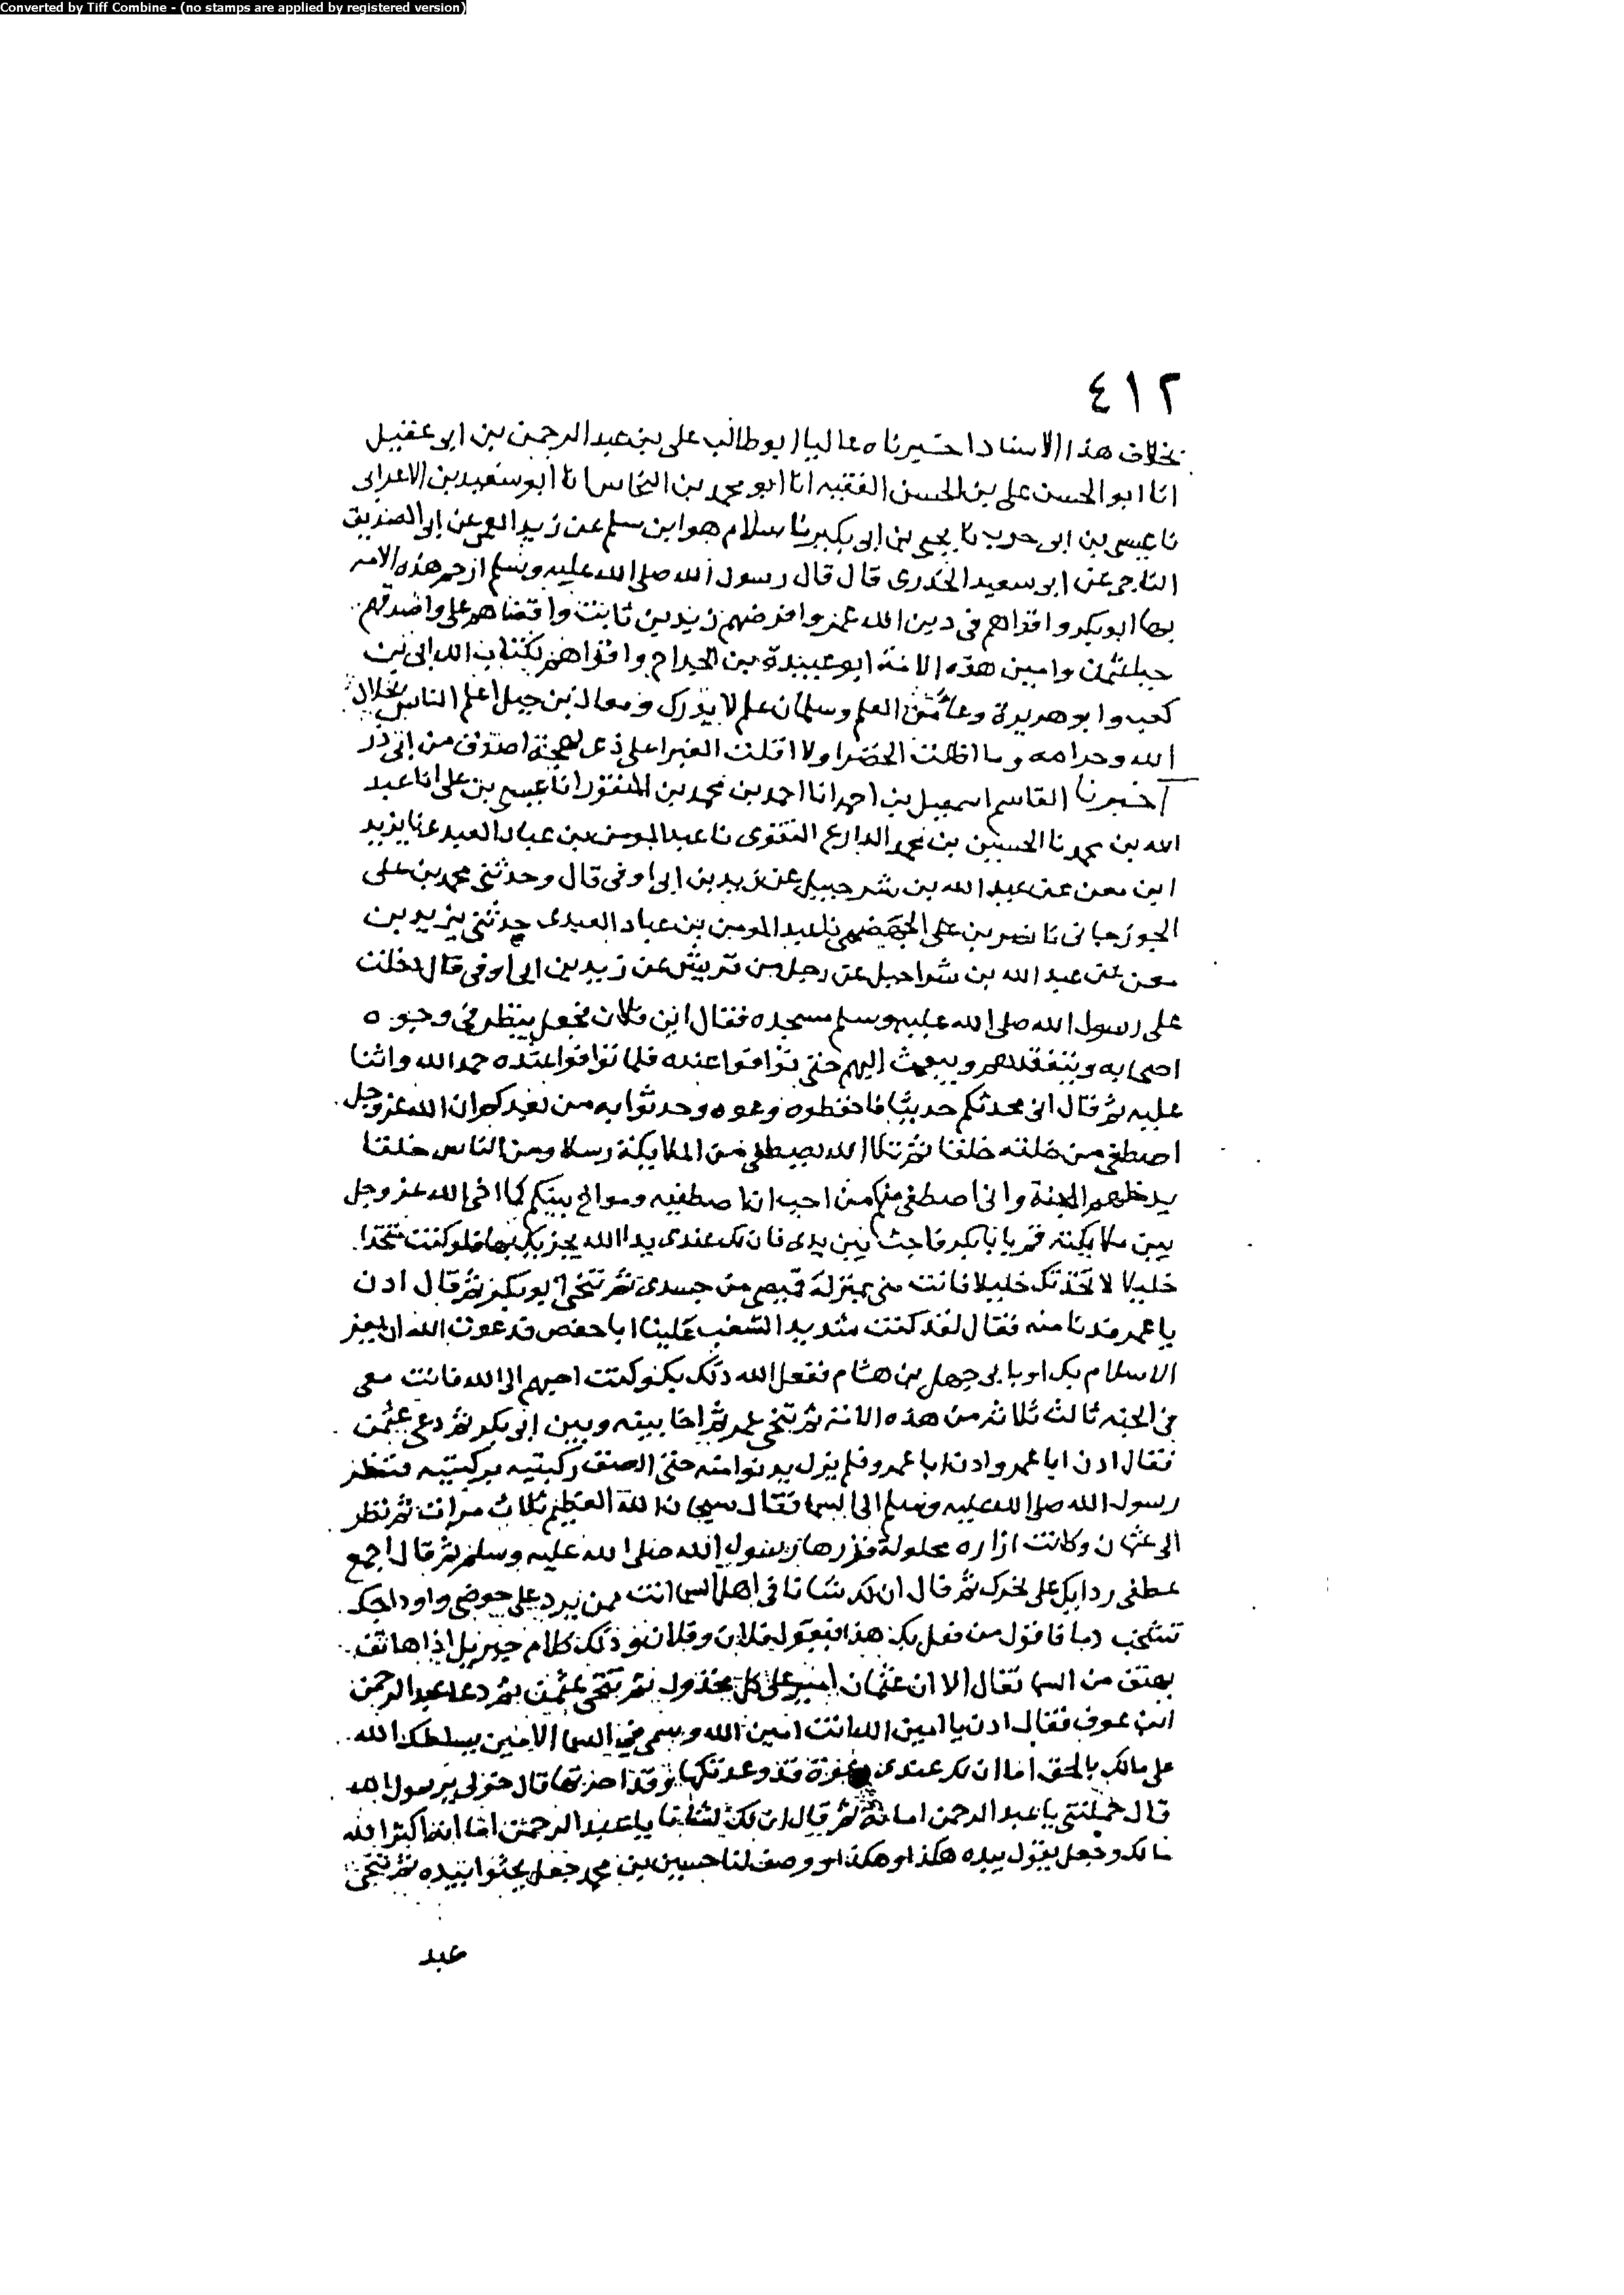 Converted by Tiff Combine - (no stamps are applied by registered version)
٤١٢
بخلاف هذا الاسناد اخبرناه عاليا ابو طالب على بن عبد الرحمن بن ابى عقيل
انا ابو الحسن على بن الحسن الفقيه انا ابو محمد بن النحاس انا ابو سعيد بن الاعرابى
نا عيسى بن ابى حرب نا يحيى بن ابى بكير نا سلام هو ابن سلم عن زيد العمى عن ابى الصديق
الناجى عن ابو سعيد الخدرى قال قال رسول الله صلى الله عليه وسلم ارحم هذه الامه
بها ابو بكر واقواهم فى دين الله عمر وافرضهم زيد بن ثابت واقضاهم على واصدقهم
حيا عثمن وامين هذه الامة ابو عبيدة بن الجراح واقراهم بكتاب الله ابى بن
كعب وابو هريرة وعا من العلم وسلمان علم لا يدرك ومعاذ بن جبل اعلم الناس بحلال
الله وحرامه وما اظلت الخضرا ولا اقلت الغبرا على ذى لهجة اصدق من ابى ذر
اخبرنا القاسم اسمعيل بن احمد انا احمد بن محمد بن النقور انا عيسى بن على انا عبد
الله بن محمد نا الحسين بن محمد الدارع نا عبد المومن بن عباد العبدى نا يزيد
ابن معن عن عبد الله بن شرحبيل عن زيد بن ابى اوفى قال وحدثنى محمد بن على
الجوزجانى نا نصر بن على الجهضمى نا عبد المومن بن عباد العبدى حدثنى يزيد بن
معن عن عبد الله بن شراحيل عن رجل من قريش عن زيد بن ابى اوفى قال دخلت
على رسول الله صلى الله عليه وسلم مسجده فقال اين فلان فجعل ينظر فى وجوه
اصحابه ويتفقدهم ويبعث اليهم حتى توافوا عنده فلما توافوا عنده حمد الله واثنا
عليه ثم قال انى محدثكم حديثا فاحفظوه وعوه وحدثوا به من بعدكم ان الله عز وجل
اصطفى من خلقه خلقا ثم تلا الله يصطفى من الملايكة رسلا ومن الناس خلقا
يدخلهم الجنة وانى اصطفى منكم من احب ان اصطفيه ومواخ بينكم كما اخى الله عز وجل
بين ملايكته قم يا با بكر فاجث بين يدى فان لك عندى يدا الله يجزيك بها فلو كنت متخذا
خليلا لاتخذتك خليلا فانت منى بمنزلة قميصى من جسدى ثم تنحى ابو بكر ثم قال ادن
يا عمر فدنا منه فقال لقد كنت شديد الشغب علينا ابا حفص فدعوت الله ان يعز
الاسلام بك او بابى جهل بن هشام ففعل الله ذلك بك وكنت احبهم الى الله فانت معى
فى الجنه ثالث ثلاثة من هذه الامة ثم تنحى عمر ثم اخا بينه وبين ابى بكر ثم دعى عثمن
فقال ادن ابا عمرو ادن ابا عمرو فلم يزل يدنوا منه حتى الصق ركبتيه بركبتيه فنظر
رسول الله صلى الله عليه وسلم الى السما فقال سبحان الله العظيم ثلاث مرات ثم نظر
الى عثمان وكانت ازاره محلولة فزرها رسول الله صلى الله عليه وسلم ثم قال اجمع
عطفى ردايك على نحرك ثم قال ان لك شانا فى اهل السما انت ممن يرد على حوضى واوداجك
تشخب دما فاقول من فعل بك هذا فيقول فلان وفلان وذلك كلام جبريل اذا هاتف
يهتف من السما فقال الا ان عثمان امير على كل مخذول ثم تنحى عثمن ثم دعا عبد الرحمن
ابن عوف فقال ادن يا امين الله انت امين الله ويسمى فى السما الامين يسلطك الله
على مالك بالحق اما ان لك عندى دعوة قد وعدتكها وقد اخرتها قال خر لى يرسول الله
قال حملتنى يا عبد الرحمن امانة ثم قال ان لك لشانا يا عبد الرحمن اما انه اكثر الله
مالك وجعل يقول بيده هكذا وهكذا ووصف لنا حسين بن محمد جعل يحثوا بيده ثم تنحى
عبد